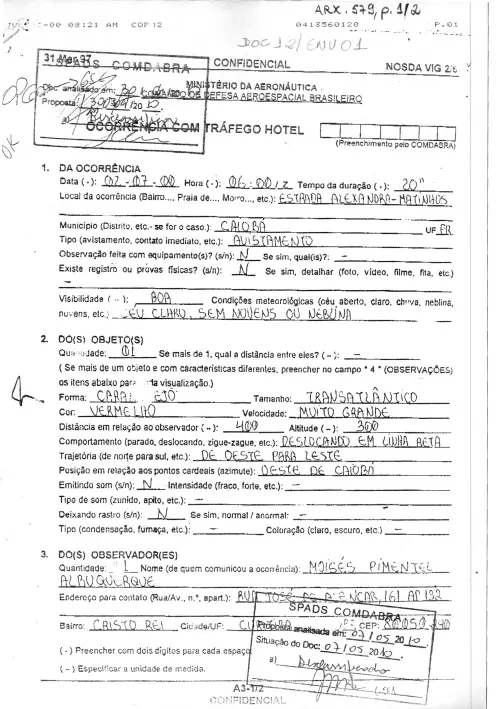 ARX. 579, p. 1/2
-00 08:21 AM COP 12 0413560120 P.01
DOC 12/ENV 01
31 Mar 97
SPADS COMDABRA
CONFIDENCIAL
NOSDA VIG 2/8
MINISTÉRIO DA AERONÁUTICA
DE DEFESA AEROESPACIAL BRASILEIRO
Doc. analisado em: 30
Proposta
a)
OK
OCORRÊNCIA COM TRÁFEGO HOTEL
(Preenchimento pelo COMDABRA)
1. DA OCORRÊNCIA
Data ( - ): 02-07-00 Hora ( - ): 06:00/Z Tempo da duração ( - ): 20"
Local da ocorrência (Bairro..., Praia de..., Morro..., etc.): ESTRADA ALEXANDRA-MATINHOS
Município (Distrito, etc.- se for o caso.): CAIOBÁ UF PR
Tipo (avistamento, contato imediato, etc.): AVISTAMENTO
Observação feita com equipamento(s)? (s/n): N Se sim, qual(is)?: -
Existe registro ou provas físicas? (s/n): N Se sim, detalhar (foto, vídeo, filme, fita, etc.)
-
Visibilidade ( - ): BOA Condições meteorológicas (céu aberto, claro, chuva, neblina,
nuvens, etc.: CEU CLARO, SEM NUVENS OU NEBLINA
2. DO(S) OBJETO(S)
Quantidade: 01 Se mais de 1, qual a distância entre eles? ( - ): -
( Se mais de um objeto e com características diferentes, preencher no campo " 4 " (OBSERVAÇÕES)
os itens abaixo para visualização.)
Forma: Tamanho: TRANSATLÂNTICO
Cor: VERMELHO Velocidade: MUITO GRANDE
Distância em relação ao observador ( - ): 400 Altitude ( - ): 300
Comportamento (parado, deslocando, zigue-zague, etc.): DESLOCANDO EM LINHA RETA
Trajetória (de norte para sul, etc.): DE OESTE PARA LESTE
Posição em relação aos pontos cardeais (azimute): OESTE DE CAIOBÁ
Emitindo som (s/n): N Intensidade (fraco, forte, etc.): -
Tipo de som (zunido, apito, etc.): -
Deixando rastro (s/n): N Se sim, normal / anormal: -
Tipo (condensação, fumaça, etc.): - Coloração (claro, escuro, etc.) -
3. DO(S) OBSERVADOR(ES)
Quantidade: 1 Nome (de quem comunicou a ocorrência): MOISÉS PIMENTEL
ALBUQUERQUE
Endereço para contato (Rua/Av., n.°, apart.): RUA JOSÉ DE ALENCAR, 161 AP 132
Bairro: CRISTO REI Cidade/UF: CEP:
SPADS COMDABRA
Proposta analisada em: 07/05 2010
Situação do Doc: 07/05 2010
a) Desclassificado
( - ) Preencher com dois dígitos para cada espaço
( – ) Especificar a unidade de medida.
A3-1/2
CONFIDENCIAL